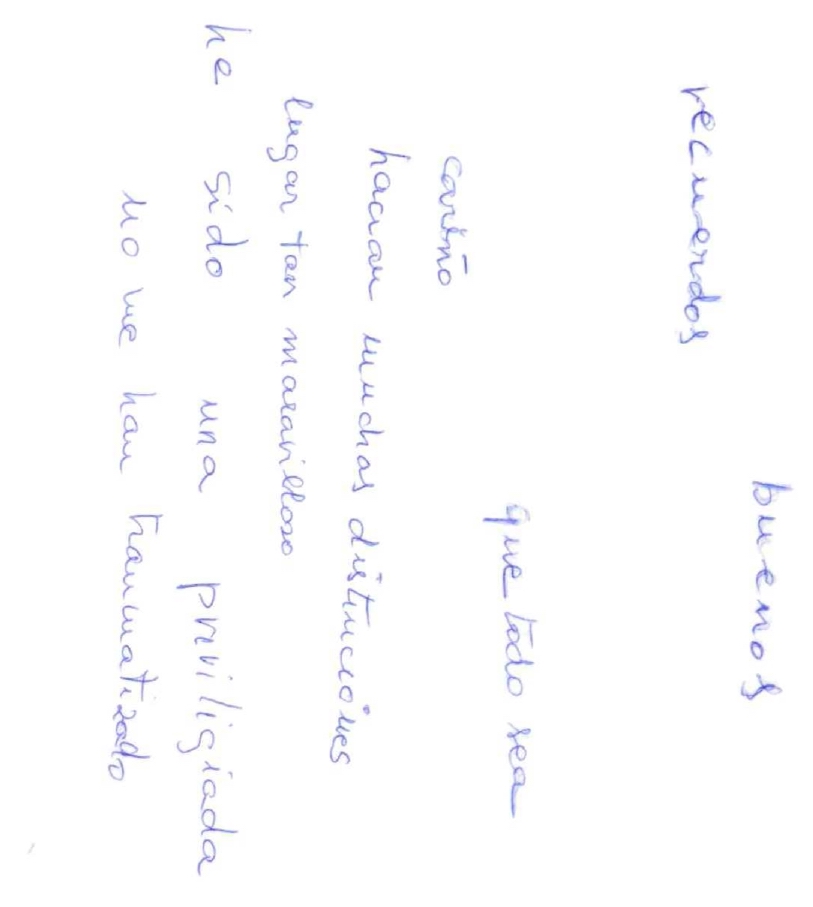 buenos
recuerdos
que todo sea
cariño
hacian muchas distinciónes
lugar tan maravilloso
he sido una priviligiada
no me han traumatizado